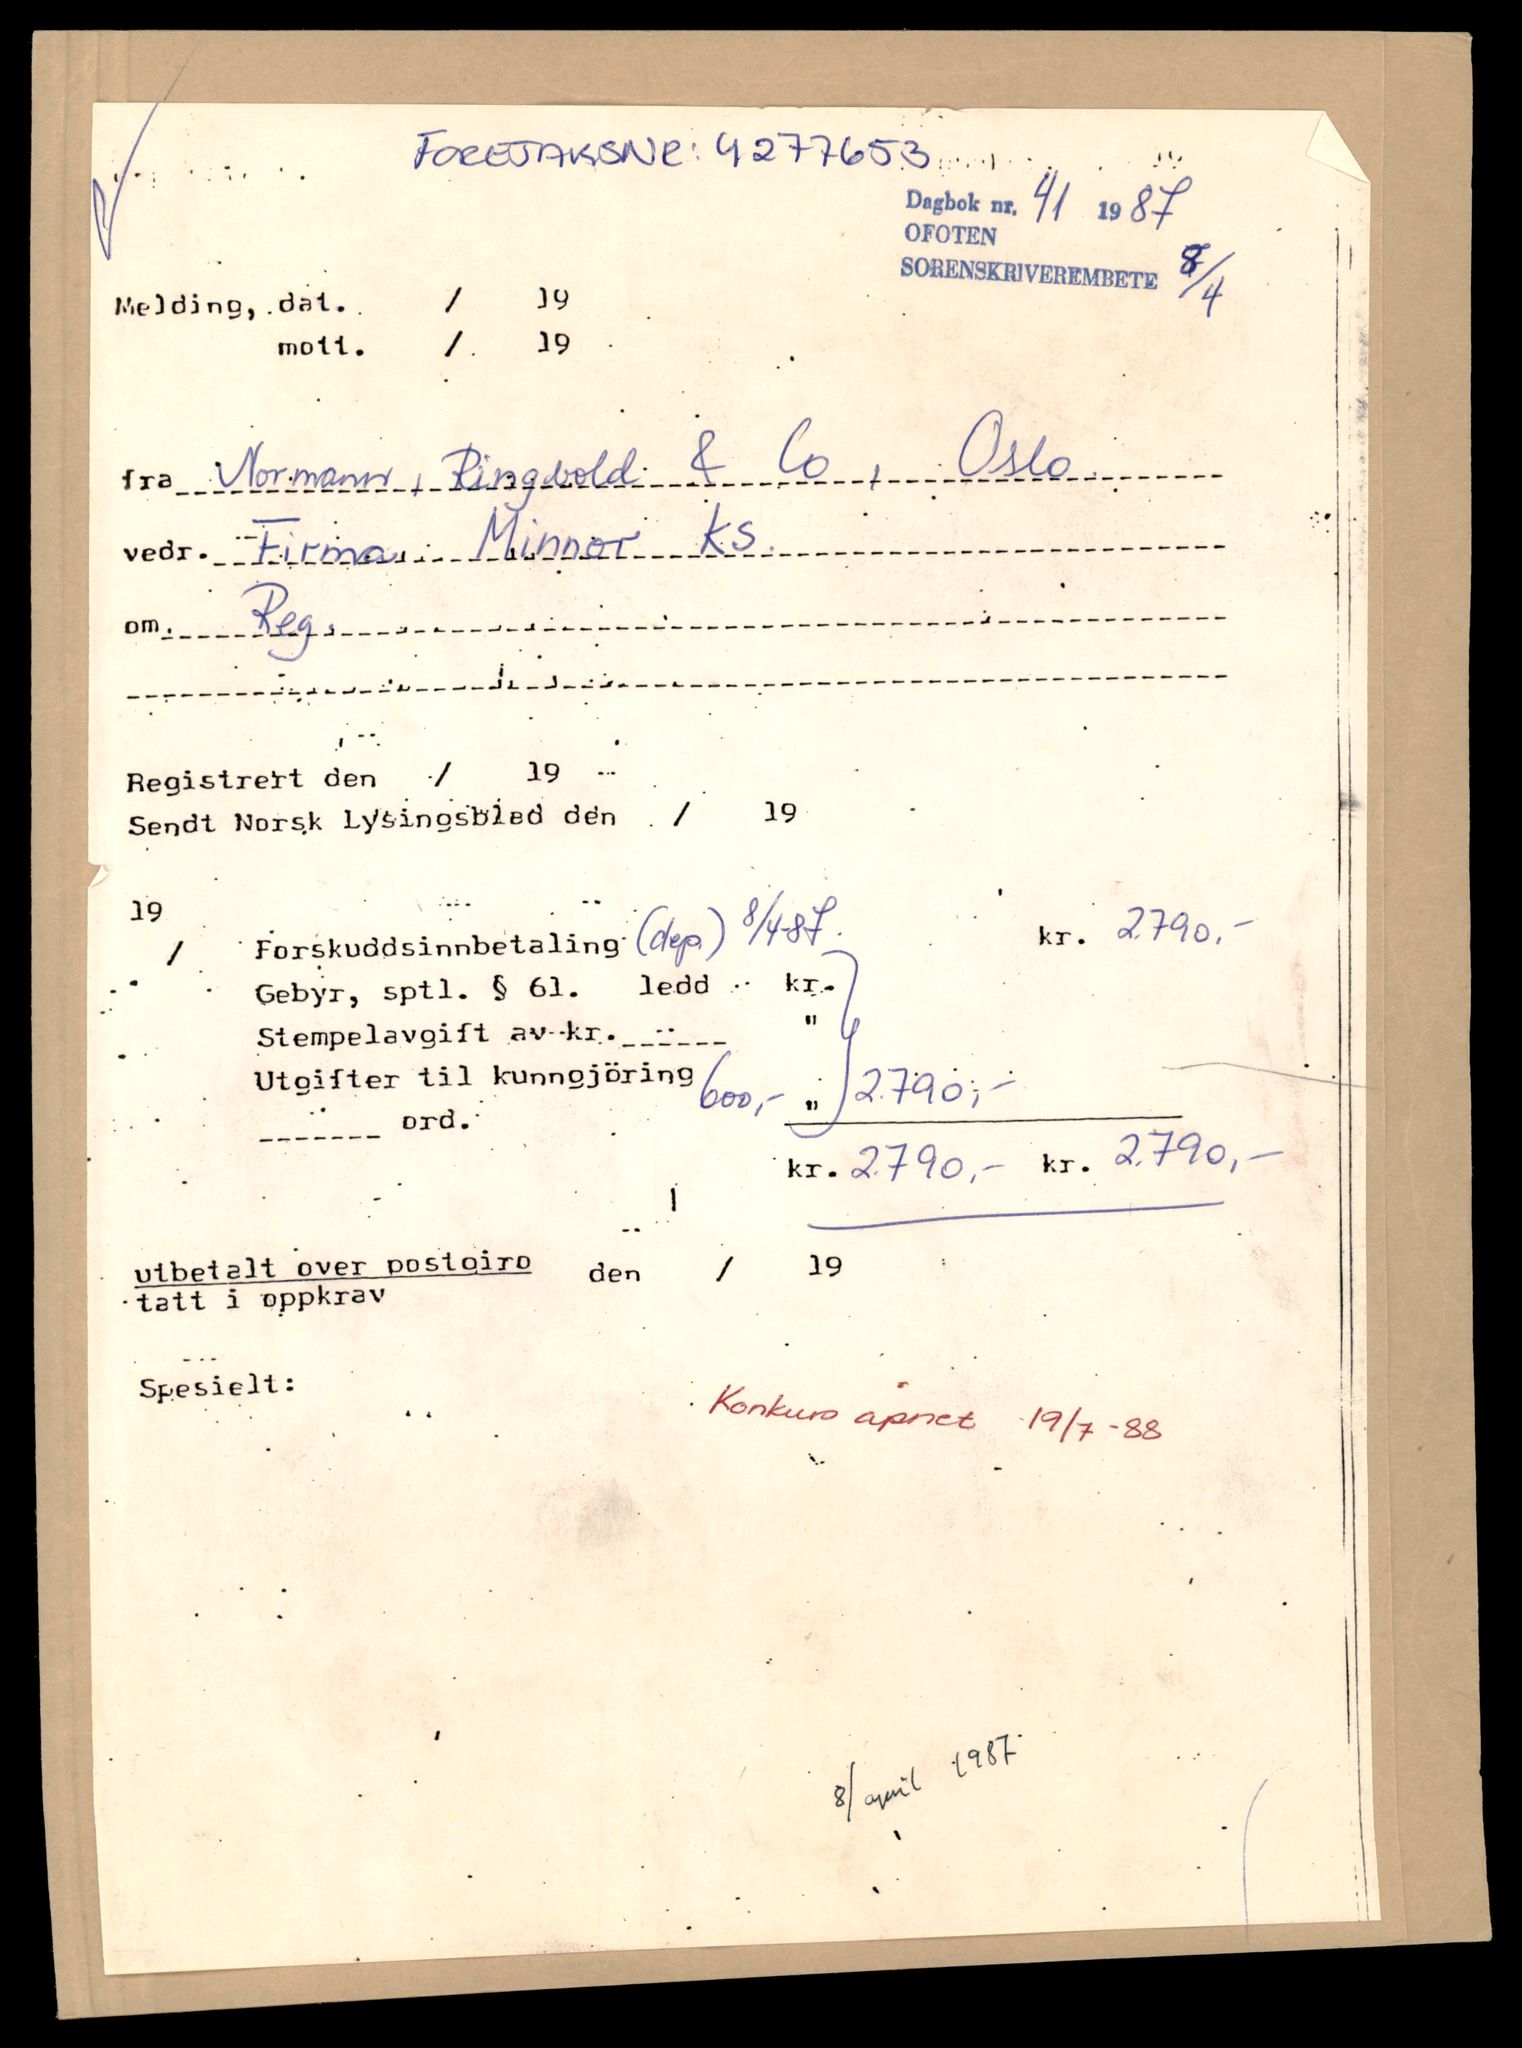 FORETAKSNR: 4277653
Dagbok nr. 41 1987
OFOTEN
SORENSKRIVEREMBETE 8/4
Melding, dat. / 19
mott. / 19
fra Normann, Ringvold & Co, Oslo
vedr. Firma Minnor KS
om. Reg.
Registrert den / 19
Sendt Norsk Lysingsblad den / 19
19
/ Forskuddsinnbetaling (dep.) 8/4-87. kr. 2.790,-
Gebyr, sptl. § 61. ledd kr.
Stempelavgift av kr. ______ "
Utgifter til kunngjöring 600,- " 2.790,-
_______ ord.
kr. 2.790,- kr. 2.790,-
utbetalt over postgiro den / 19
tatt i oppkrav
Spesielt:
Konkurs åpnet 19/7-88
8/april 1987